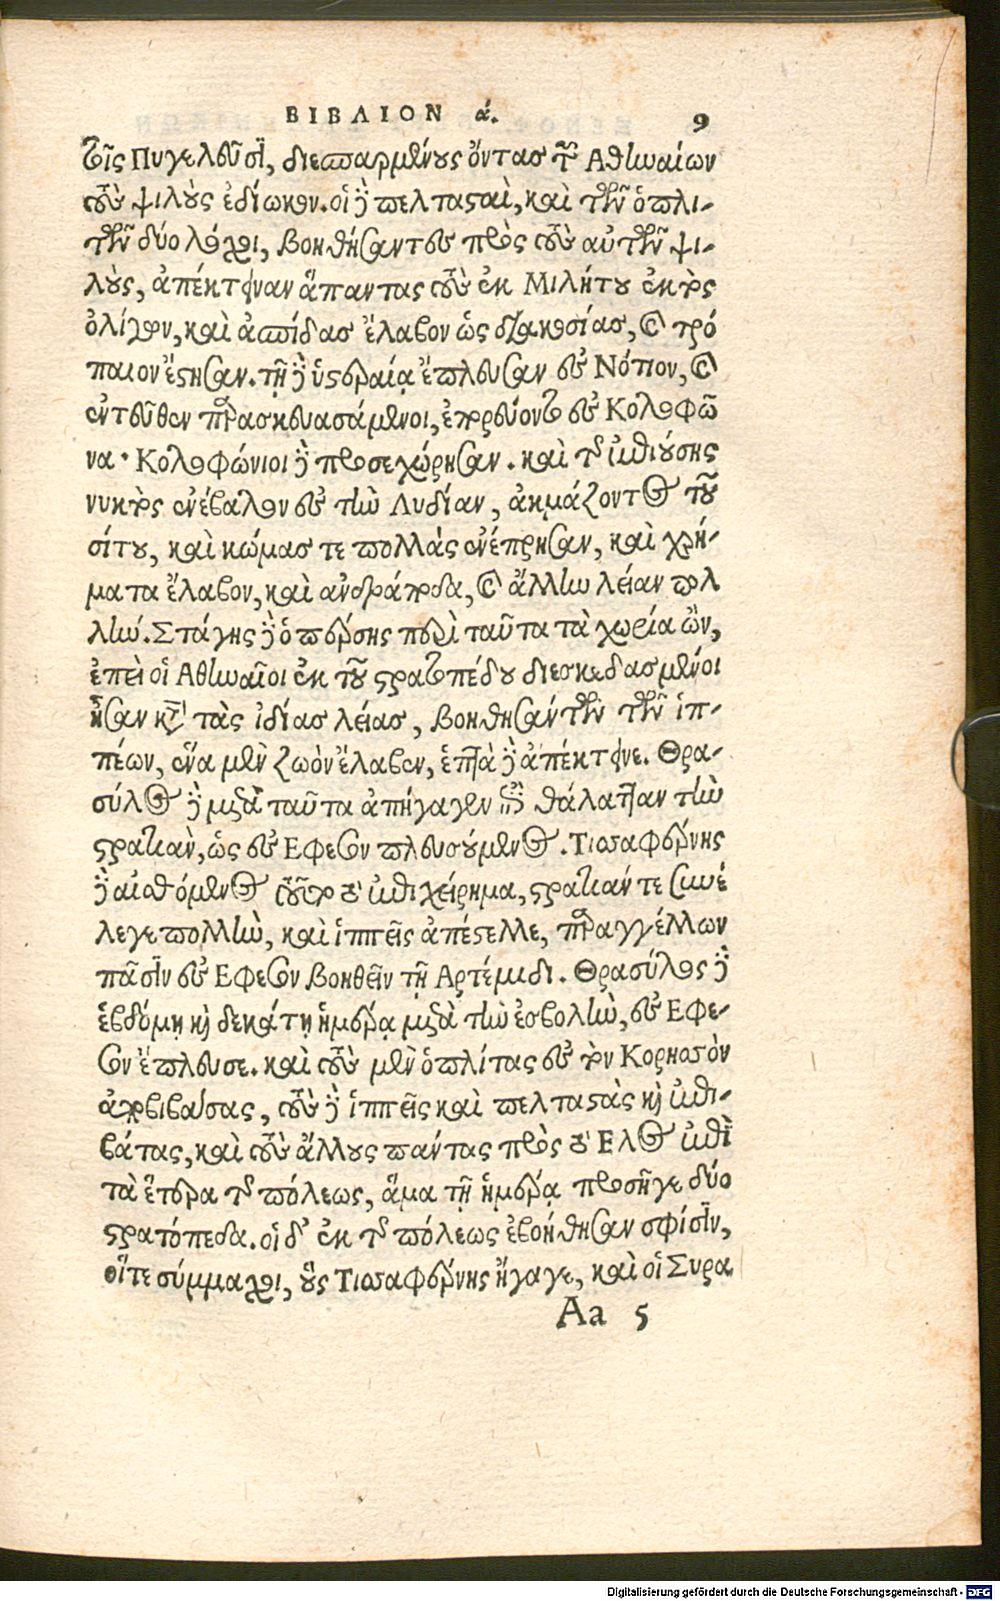 ΒΙΒΛΙΟΝ ά. 9
τοῖς Πυγελεῦσι, διεσπαρμένους ὄντας τῶν Ἀθηναίων
τοὺς ψιλοὺς ἐδίωκον. οἱ δὲ πελτασταὶ, καὶ τῶν ὁπλι-
τῶν δύο λόχοι, βοηθήσαντες πρὸς τοὺς αὑτῶν ψι-
λοὺς, ἀπέκτειναν ἅπαντας τοὺς ἐκ Μιλήτου ἐκτὸς
ὀλίγων, καὶ ἀσπίδας ἔλαβον ὡς διακοσίας, καὶ τρό
παιον ἔστησαν. τῇ δὲ ὑστεραίᾳ ἔπλευσαν εἰς Νότιον, καὶ
ἐντεῦθεν παρασκευασάμενοι, ἐπορεύοντο εἰς Κολοφῶ
να· Κολοφώνιοι δὲ προσεχώρησαν. καὶ τῆς ἐπιούσης
νυκτὸς ἐνέβαλον εἰς τὴν Λυδίαν, ἀκμάζοντος τοῦ
σίτου, καὶ κώμας τε πολλὰς ἐνέπρησαν, καὶ χρή-
ματα ἔλαβον, καὶ ἀνδράποδα, καὶ ἄλλην λείαν πολ
λήν. Στάγης δὲ ὁ πέρσης περὶ ταῦτα τὰ χωρία ὢν,
ἐπεὶ οἱ Ἀθηναῖοι ἐκ τοῦ στρατοπέδου διεσκεδασμένοι
ἦσαν κατὰ τὰς ἰδίας λείας, βοηθησάντων τῶν ἱπ-
πέων, ἕνα μὲν ζωὸν ἔλαβεν, ἑπτὰ δὲ ἀπέκτεινε. Θρα-
σύλος δὲ μετὰ ταῦτα ἀπήγαγεν ἐπὶ θάλατταν τὴν
στρατιὰν, ὡς εἰς Ἔφεσον πλευσούμενος. Τισσαφέρνης
δὲ αἰσθόμενος τοῦτο τὸ ἐπιχείρημα, στρατιάν τε συνέ
λεγε πολλὴν, καὶ ἱππεῖς ἀπέστελλε, παραγγέλλων
πᾶσιν εἰς Ἔφεσον βοηθεῖν τῇ Ἀρτέμιδι. Θρασύλος δὲ
ἑβδόμῃ καὶ δεκάτῃ ἡμέρᾳ μετὰ τὴν ἐσβολὴν, εἰς Ἔφε-
σον ἔπλευσε. καὶ τοὺς μὲν ὁπλίτας εἰς τὸν Κορησσὸν
ἀποβιβάσας, τοὺς δὲ ἱππεῖς καὶ πελταστὰς καὶ ἐπι-
βάτας, καὶ τοὺς ἄλλους πάντας πρὸς τὸ Ἕλος ἐπὶ
τὰ ἕτερα τῆς πόλεως, ἅμα τῇ ἡμέρᾳ προσῆγε δύο
στρατόπεδα. οἱ δ' ἐκ τῆς πόλεως ἐβοήθησαν σφίσιν,
οἵτε σύμμαχοι, οὓς Τισσαφέρνης ἤγαγε, καὶ οἱ Συρα
Aa 5
Digitalisierung gefördert durch die Deutsche Forschungsgemeinschaft - DFG